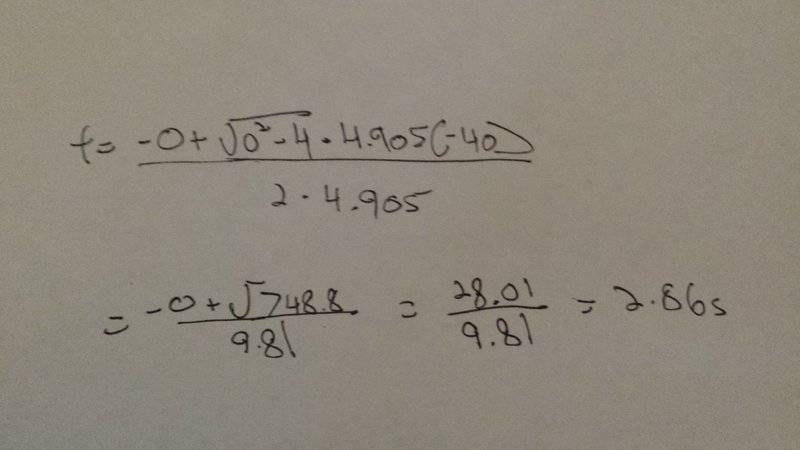 t = -0 + √0² - 4 · 4.905(-40)
2 · 4.905
= -0 + √748.8 / 9.81 = 28.01 / 9.81 = 2.86s